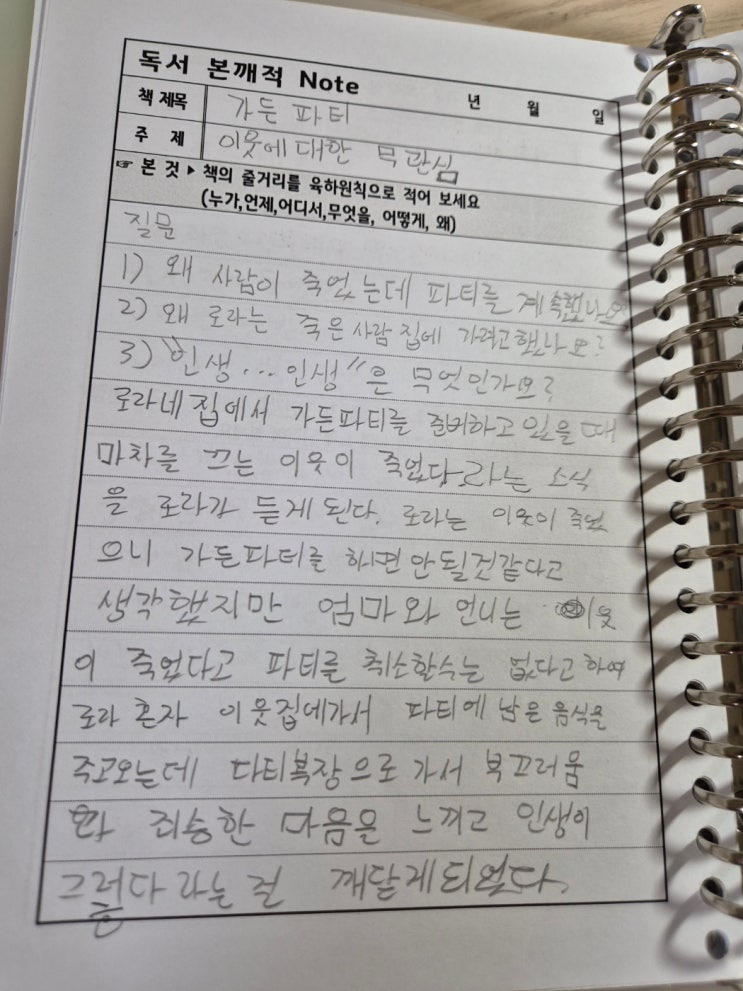 독서 본깨적 Note
년 월 일
책 제목 가든 파티
주 제 이웃에 대한 무관심
☞ 본 것 ▶ 책의 줄거리를 육하원칙으로 적어 보세요
(누가,언제,어디서,무엇을, 어떻게, 왜)
질문
1) 왜 사람이 죽었는데 파티를 계속했나요
2) 왜 로라는 죽은 사람 집에 가려고 했나요?
3) "인생... 인생"은 무엇인가요?
로라네 집에서 가든파티를 준비하고 있을 때
마차를 끄는 이웃이 죽었다라는 소식
을 로라가 듣게 된다. 로라는 이웃이 죽었
으니 가든파티를 하면 안될것같다고
생각했지만 엄마와 언니는 이웃
이 죽었다고 파티를 취소할수는 없다고 하여
로라 혼자 이웃집에가서 파티에 남은 음식을
주고오는데 파티복장으로 가서 부끄러움
과 죄송한 마음을 느끼고 인생이
그렇다 라는 걸 깨닫게되었다.